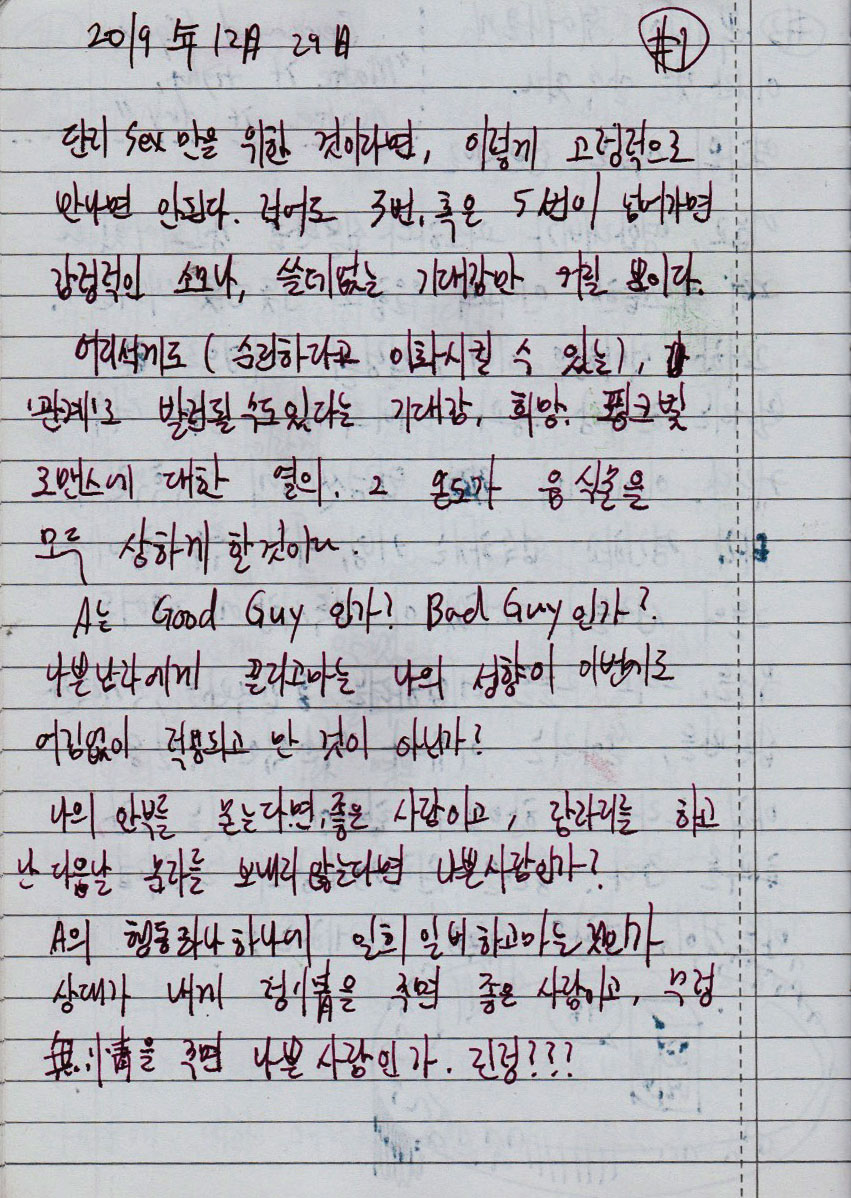 2019年 12月 29日
#1
단지 Sex만을 위한 것이라면, 이렇게 고정적으로
만나면 안된다. 적어도 3번, 혹은 5번이 넘어가면
감정적인 소모나, 쓸데없는 기대감만 커질 뿐이다.
어리석게도 (순진하다고 미화시킬 수 있는),
'관계'로 발전될 수도 있다는 기대감, 희망, 핑크빛
로맨스에 대한 열의. 그 온도가 음식물을
모두 상하게 할 것이다.
A는 Good Guy 인가? Bad Guy 인가?
나쁜남자에게 끌리고마는 나의 성향이 이번에도
어김없이 적용되고 만 것이 아닌가?
나의 안부를 묻는다면, 좋은 사람이고, 잠자리를 하고
난 다음날 문자를 보내지 않는다면 나쁜사람인가?
A의 행동 하나하나에 일희일비하고마는 것인가
상대가 내게 정情을 주면 좋은 사람이고, 무정
無情을 주면 나쁜 사람인가. 진정???